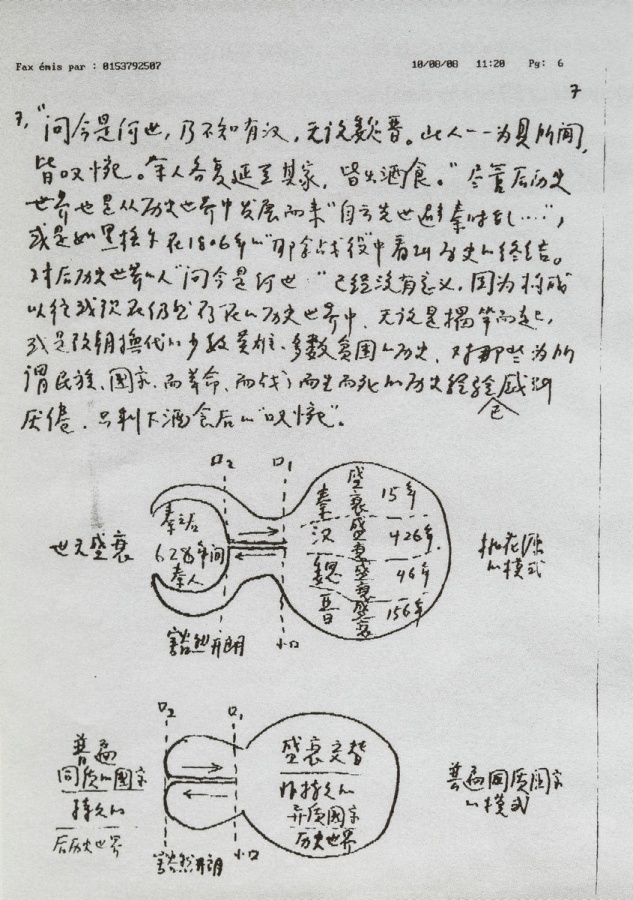 Fax émis par : 0153792507 10/08/08 11:20 Pg: 6
7
7, "问今是何世，乃不知有汉，无论魏晋。此人一一为具所闻，
皆叹惋。余人各复延至其家，皆出酒食。"尽管后历史
世界也是从历史世界中发展而来"自云先世避秦时乱……"，
或是如黑格尔在1806年的"耶拿战役"中看到历史的终结。
对后历史世界的人"问今是何世"已经没有意义，因为构成
以往或现在仍然存在的历史世界中，无论是揭竿而起，
或是改朝换代的少数英雄、多数贫困的历史，对那些为所
谓民族、国家、而革命、而战，而生而死的历史经验已感到
厌倦，只剩下酒食后的"叹惋"。
口2 口1
世无盛衰
秦之后
628年间
秦人
秦 盛衰 15年
汉 盛衰 426年
魏 盛衰 46年
晋 盛衰 156年
桃花源
的模式
豁然开朗 小口
口2 口1
普遍
同质的国家
持久的
后历史世界
盛衰交替
非持久的
异质国家
历史世界
普遍同质国家
的模式
豁然开朗 小口